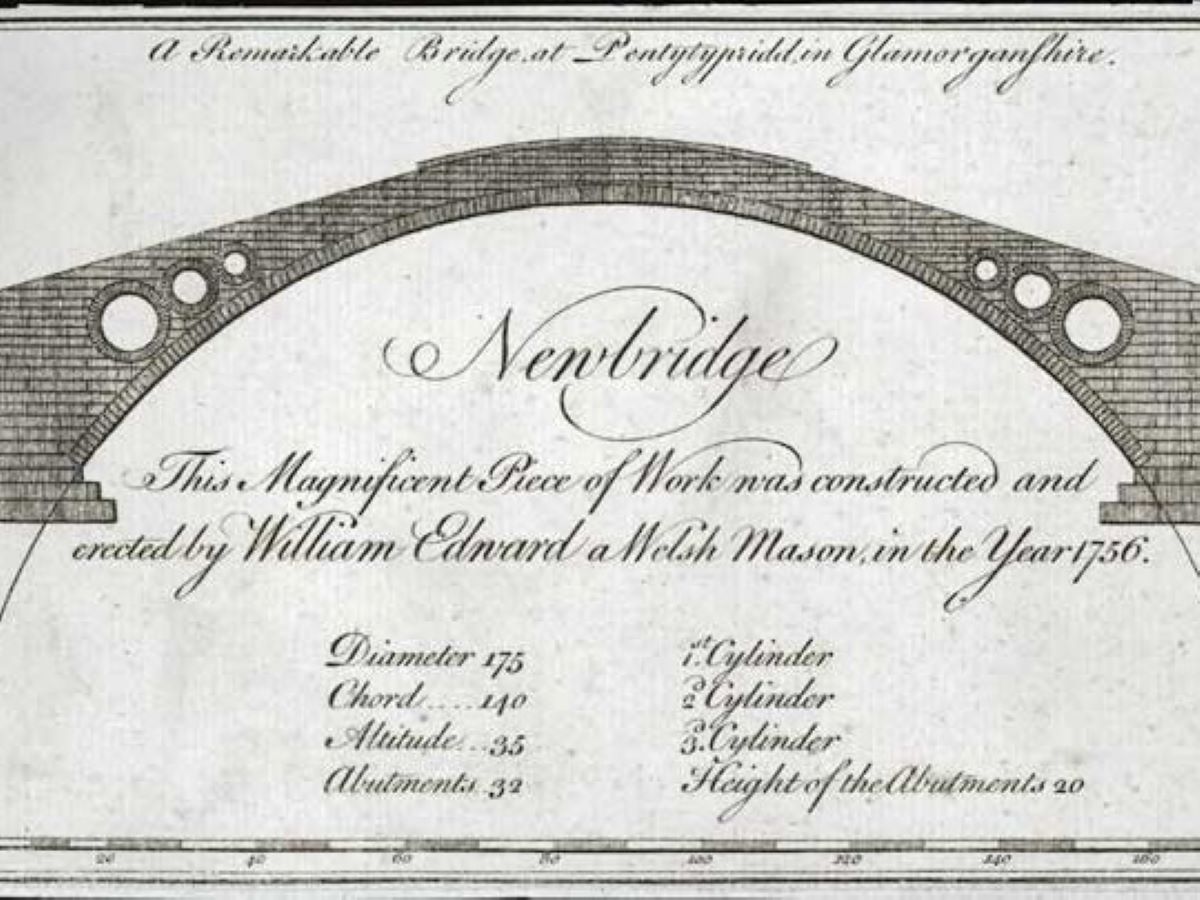 A Remarkable Bridge, at Pontytypridd, in Glamorganshire.
Newbridge
This Magnificent Piece of Work was constructed and
erected by William Edward a Welsh Mason, in the Year 1756.
Diameter 175
Chord.....140
Altitude...35
Abutments 32
1st. Cylinder
2d Cylinder
3d. Cylinder
Height of the Abutments 20
20 40 60 80 100 120 140 160